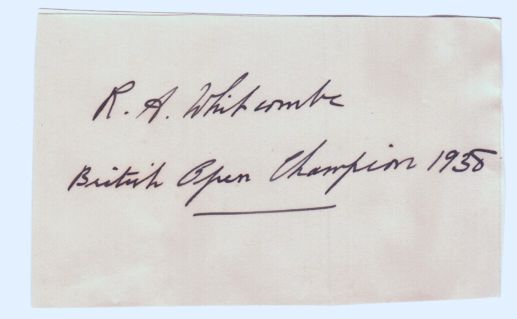 R. A. Whitcombe
British Open Champion 1938